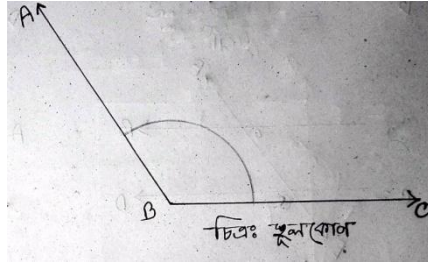 A
B
C
চিত্রঃ স্থূলকোণ